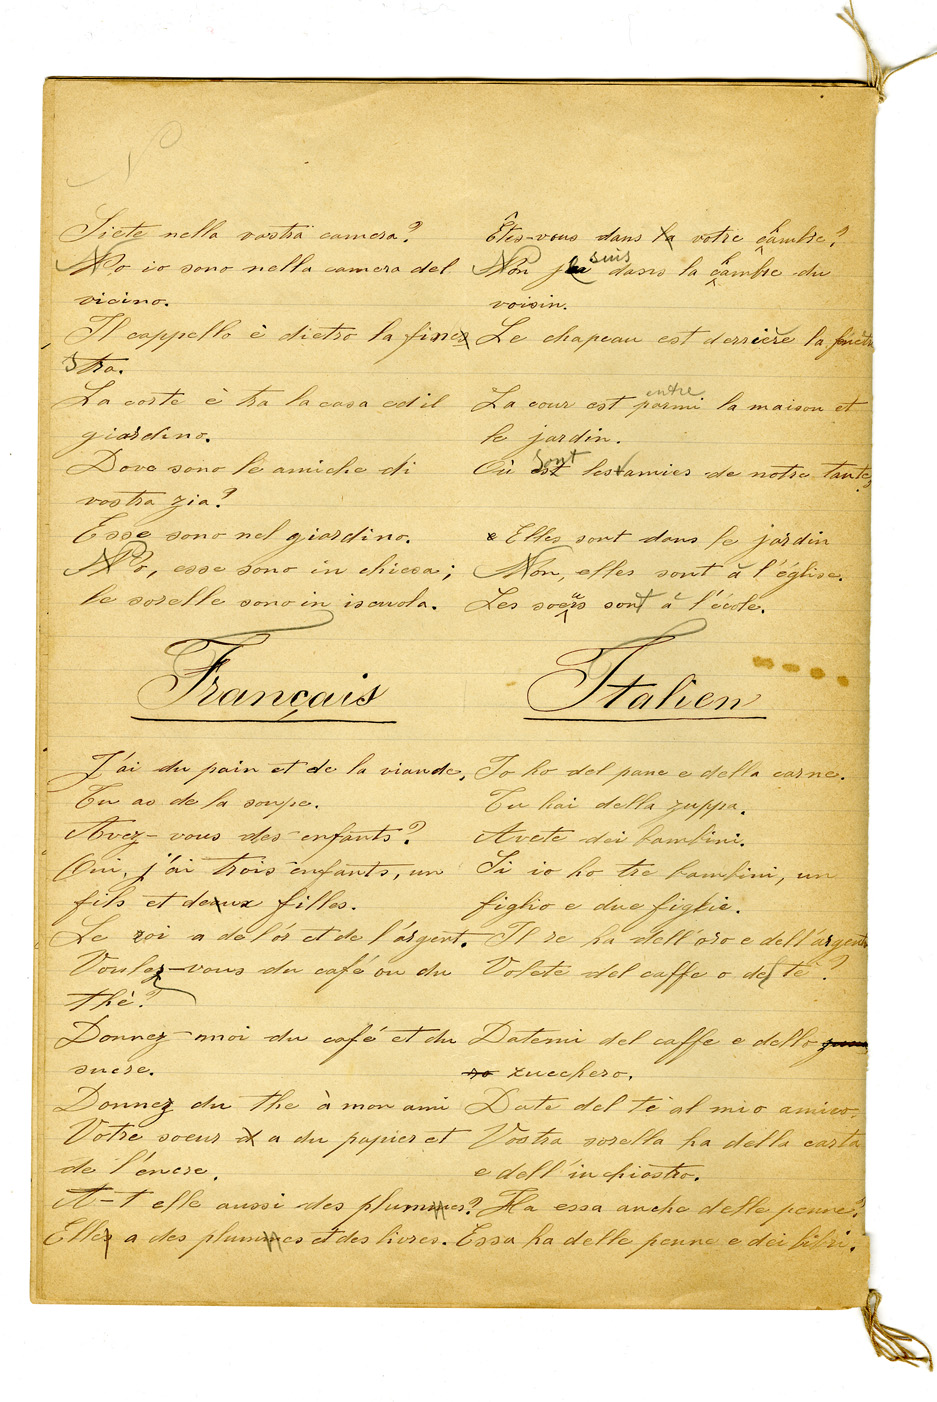 Siete nella vostra camera?
No io sono nella camera del
vicino.
Il cappello è dietro la fines
stra.
La corte è tra la casa ed il
giardino.
Dove sono le amiche di
vostra zia?
Esse sono nel giardino.
No, esse sono in chiesa;
le sorelle sono in iscuola.
Êtes-vous dans la votre câmbre?
Non je suis dans la câmbre du
voisin.
Le chapeau est derrière la fenêtre
entre
La cour est parmi la maison et
le jardin.
sont
Où est les amies de notre tante?
Elles sont dans le jardin
Non, elles sont à l'église.
Les soeurs sont à l'école.
Français
Italien
J'ai du pain et de la viande,
Tu as de la soupe.
Avez-vous des enfants?
Oui, j'ai trois enfants, un
fils et deux filles.
Le roi a de l'or et de l'argent.
Voulez-vous du café ou du
thé?
Donnez-moi du café et du
sucre.
Donnez du the à mon ami
Votre soeur a a du papier et
de l'encre.
A-t elle aussi des plummes?
Elles a des plummes et des livres.
Io ho del pane e della carne.
Tu hai della zuppa.
Avete dei bambini.
Si io ho tre bambini, un
figlio e due figlie.
Il re ha dell'oro e dell'argento
Volete del caffe o del te?
Datemi del caffe e dello
zucchero.
Date del te al mio amico.
Vostra sorella ha della carta
e dell'inchiostro.
Ha essa anche delle penne?
Essa ha delle penne e dei libri.